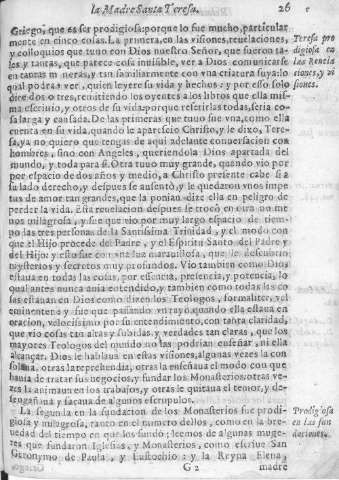 la Madre Santa Teresa. 26
Griego, que es ser prodigiosa: porque lo fue mucho, particular
mente en cinco cosas. La primera, en las visiones, reuelaciones,
y colloquios que tuuo con Dios nuestro Señor, que fueron ta-
les y tantas, que parece cosa inuisible, ver a Dios comunicarse
en tantas maneras, y tan familiarmente con vna criatura suya: lo
qual podra ver, quien leyere su vida y hechos: y por esso solo
dire dos o tres, remitiendo los oyentes a los libros que ella mis-
ma escriuio, y otros de su vida: porque referirlas todas, seria co-
sa larga y cansada. De las primeras que tuuo fue vna, como ella
cuenta en su vida, quando le aparecio Christo, y le dixo, Tere-
sa, ya no quiero que tengas de aqui adelante conuersacion con
hombres, sino con Angeles, queriendola Dios apartada del
mundo, y toda para si. Otra tuuo muy grande, quando vio por
por espacio de dos años y medio, a Christo presente cabe si a
su lado derecho, y despues se ausentò, y le quedaron vnos impe-
tus de amor tan grandes, que la ponian dize ella en peligro de
perder la vida. Esta reuelacion despues le trocò en otra no me
nos milagrosa, y fue que vio por muy largo espacio de tiem-
po las tres personas de la Santissima Trinidad, y el modo con
que el Hijo procede del Padre, y el Espiritu Santo del Padre y
del Hijo: y esto fue con vna luz marauillosa, que le descubrio
mysterios y secretos muy profundos. Vio tambien como Dios
estaua en todas las cosas, por essencia, presencia, y potencia, lo
qual antes nunca auia entendido, y tambien como todas las co
sas estauan en Dios como dizen los Teologos, formaliter, vel
eminenter: y fue que passando vn rayo quando ella estaua en
oracion, velocissimo por su entendimiento, con tanta claridad,
que vio cosas tan altas y subidas, y verdades tan claras, que los
mayores Teologos del mundo no las podrian enseñar, ni ella
alcançar. Dios le hablaua en estas visiones, algunas vezes la con
solaua, otras la reprehendia, otras la enseñaua el modo con que
hauia de tratar sus negocios, y fundar los Monasterios: otras ve-
zes la animaua en los trabajos, y otras le quitaua el temor, y de-
sengañaua y sacaua de algunos escrupulos.
La segunda en la fundacion de los Monasterios fue prodi-
giosa y milagrosa, tanto en el numero dellos, como en la bre-
uedad del tiempo en que los fundò; leemos de algunas muge-
res que fundaron Iglesias, y Monasterios, como escriue San
Geronymo de Paula, y Eustochio: y la Reyna Elena,
G 2 madre
Teresa pro
digiosa en
las reuela
ciones, y vi
siones.
Prodigiosa
en las fun
daciones.